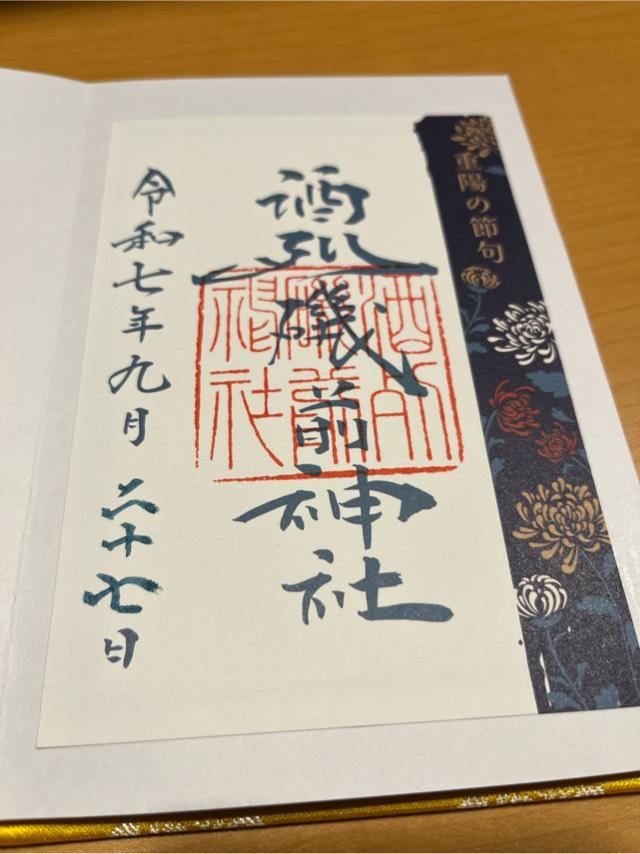 重陽の節句
酒列磯前神社
酒列
磯前
神社
令和七年九月二十七日